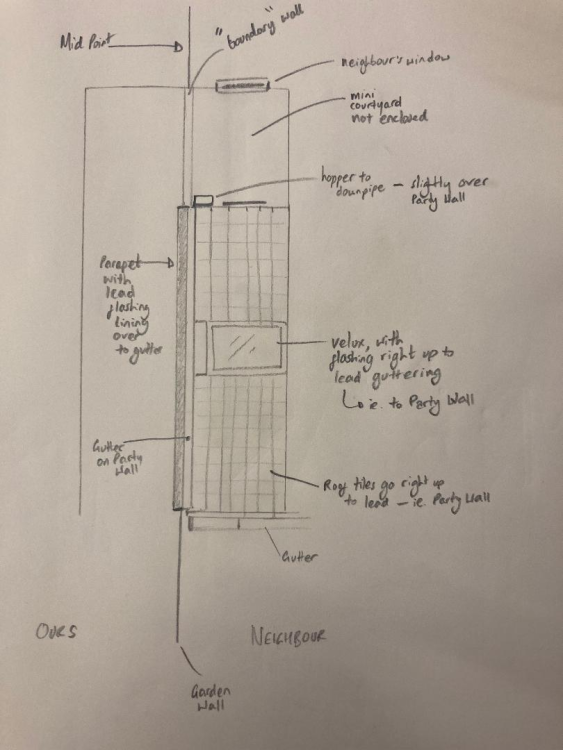 "boundary" wall
Mid Point
neighbour's window
mini
courtyard
not enclosed
hopper to
downpipe – slightly over
Party Wall
Parapet
with
lead
flashing
lining
over
to gutter
velux, with
flashing right up to
lead guttering
ie. to Party Wall
Gutter
on Party
Wall
Roof tiles go right up
to lead – ie. Party Wall
Gutter
OURS
NEIGHBOUR
Garden
Wall